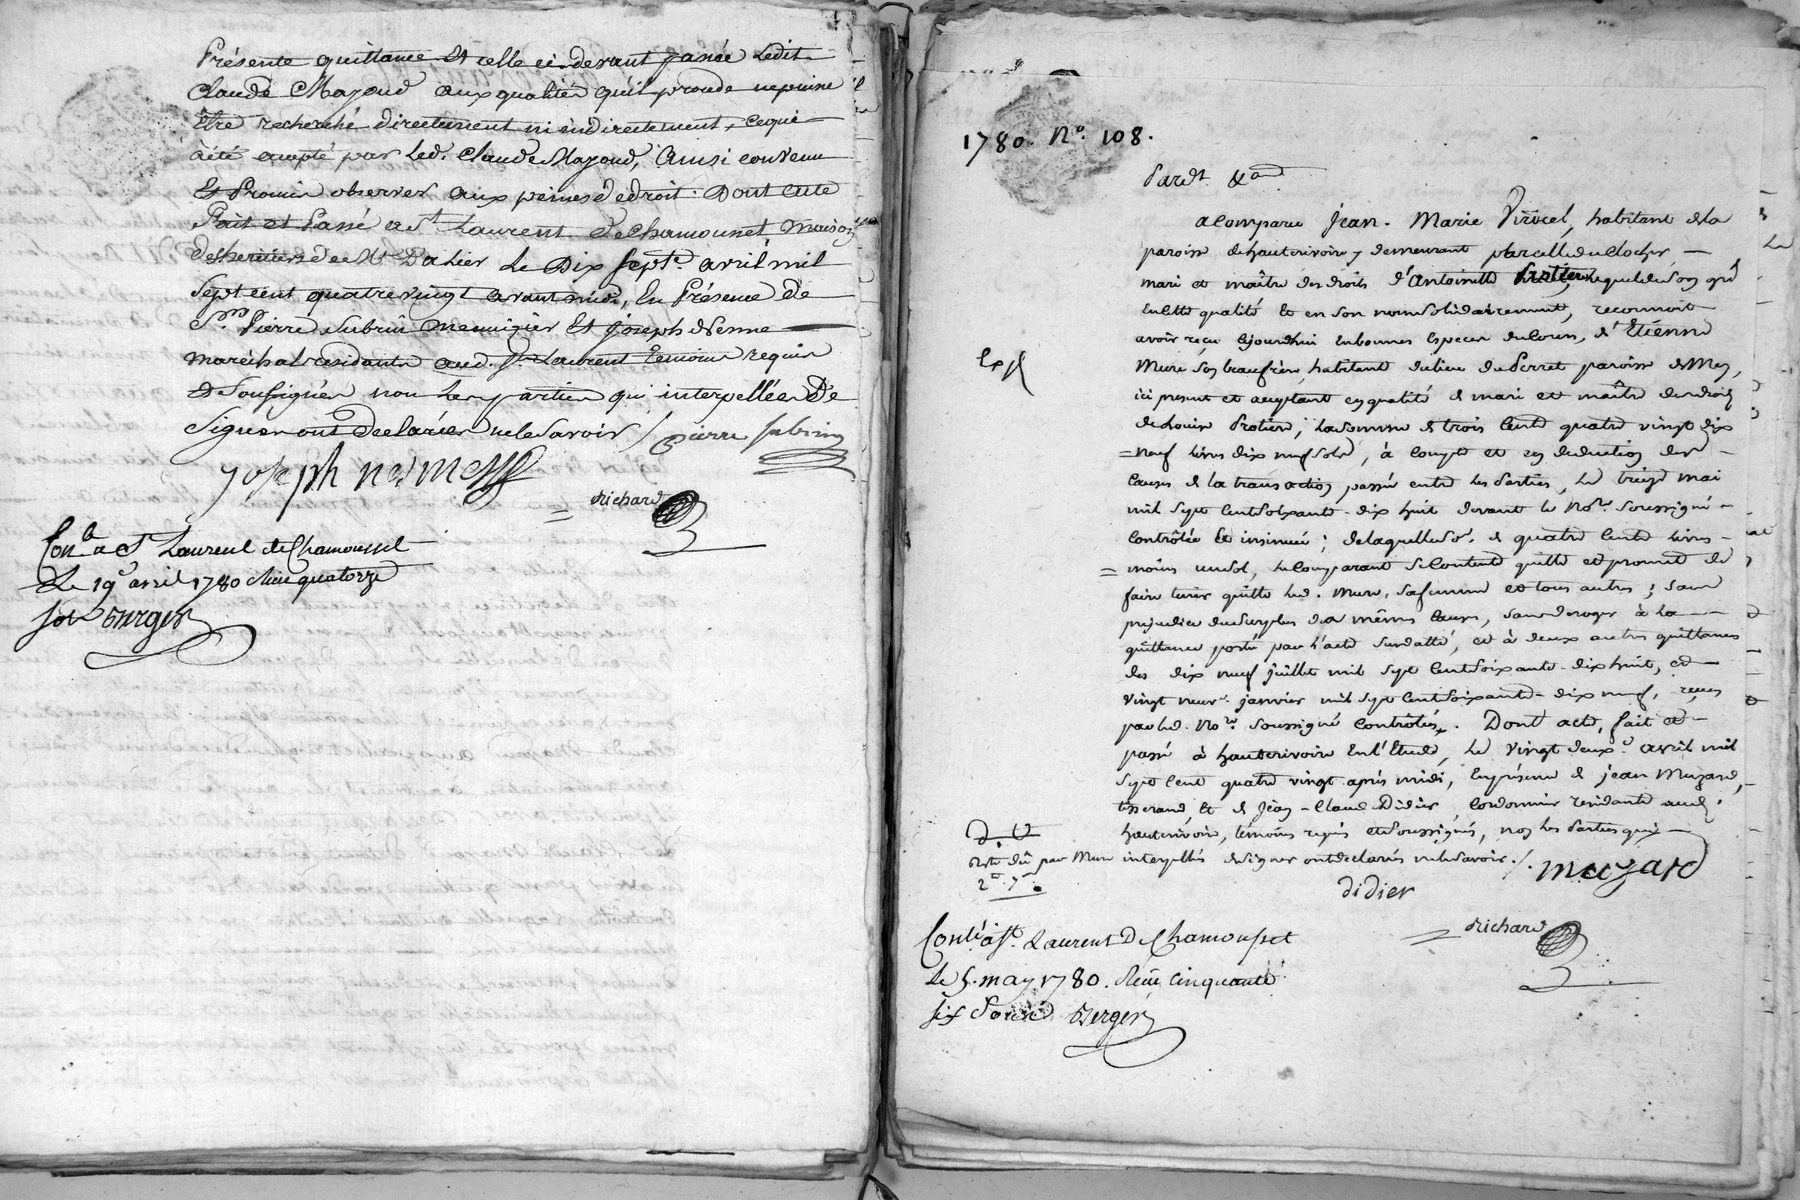 Présente quittance Et celle ci devant passée Ledit
Claude Mazoud aux qualités qu'il procede ne puisse
Etre recherché directement ni indirectement, ce qui
a été accepté par Led. Claude Mazoud, Ainsi convenu
Et Promis observer aux peines de droit. Dont acte
Fait et Passé a St Laurent de Chamousset maison
des heritiers de Me Dalier Le Dix Septe. avril mil
Sept cent quatre vingt avant midi, En Présence de
Srs Pierre Subrin meunier Et joseph Nesme
maréchal residants aud. St. Laurent temoins requis
Et Soussignés non Les parties qui interpellées De
Signer ont declarées ne le savoir / pierre subrin
joseph nesme
Richard
Conlé a St Laurent de Chamousset
Le 19e avril 1780 Reçu quatorze
sols Berger
1780. No. 108.
Pardt &a
a Comparu Jean-Marie Viricel, habitant de la
paroisse de hauterivoire y demeurant parcelle du Clocher,
mari et maître des droits d'Antoinette Protiere lequel de son gré
en cette qualité et en son nom solidairement, reconnoit
avoir reçu ajourdhui en bonnes Especes du Cours, d'Etienne
Exp
Mure son beaufrère, habitant du lieu du Perret paroisse de Mey,
ici present et acceptant en qualité de mari et maître des droits
de Louise Protiere, La somme de trois Cents quatre vingt dix
= neuf Livres dix neuf sols, à Compte et en deduction des
Causes de la transaction passée entre les Parties, Le treize mai
mil Sept Cent soixante-dix huit devant le Nore. Soussigné
Contrôlée Et insinuée; de laquelle Se. de quatre Cents Livres
= moins un sol, le Comparant se Contente quitte et promet de
faire tenir quitte led. Mure, sa femme et tous autres; sans
prejudice du surplus des mêmes Causes, sans deroger à la
quittance portée par l'acte surdatté, et à deux autres quittances
des dix neuf juillet mil sept Cent soixante-dix huit, et
vingt neuf. janvier mil sept Cent soixante-dix neuf, reçues
par led. Nore. Soussigné Contrôlées. Dont acte, fait et
passé à hauterivoire En l'Etude, Le vingt deuxe. avril mil
Sept Cent quatre vingt après midi, En présence de jean Muzard,
tisserand, Et de Jean-Claude Didier, Cordonnier residants aud.
hauterivoire, témoins requis et soussignés, non les Parties qui
Reste dû par Mure interpellés de signer ont declarés ne le savoir. /. muzard
didier
Richard
Conlé à St. Laurent De Chamousset
Le 5. may 1780. Reçu Cinquante
six Sols Berger